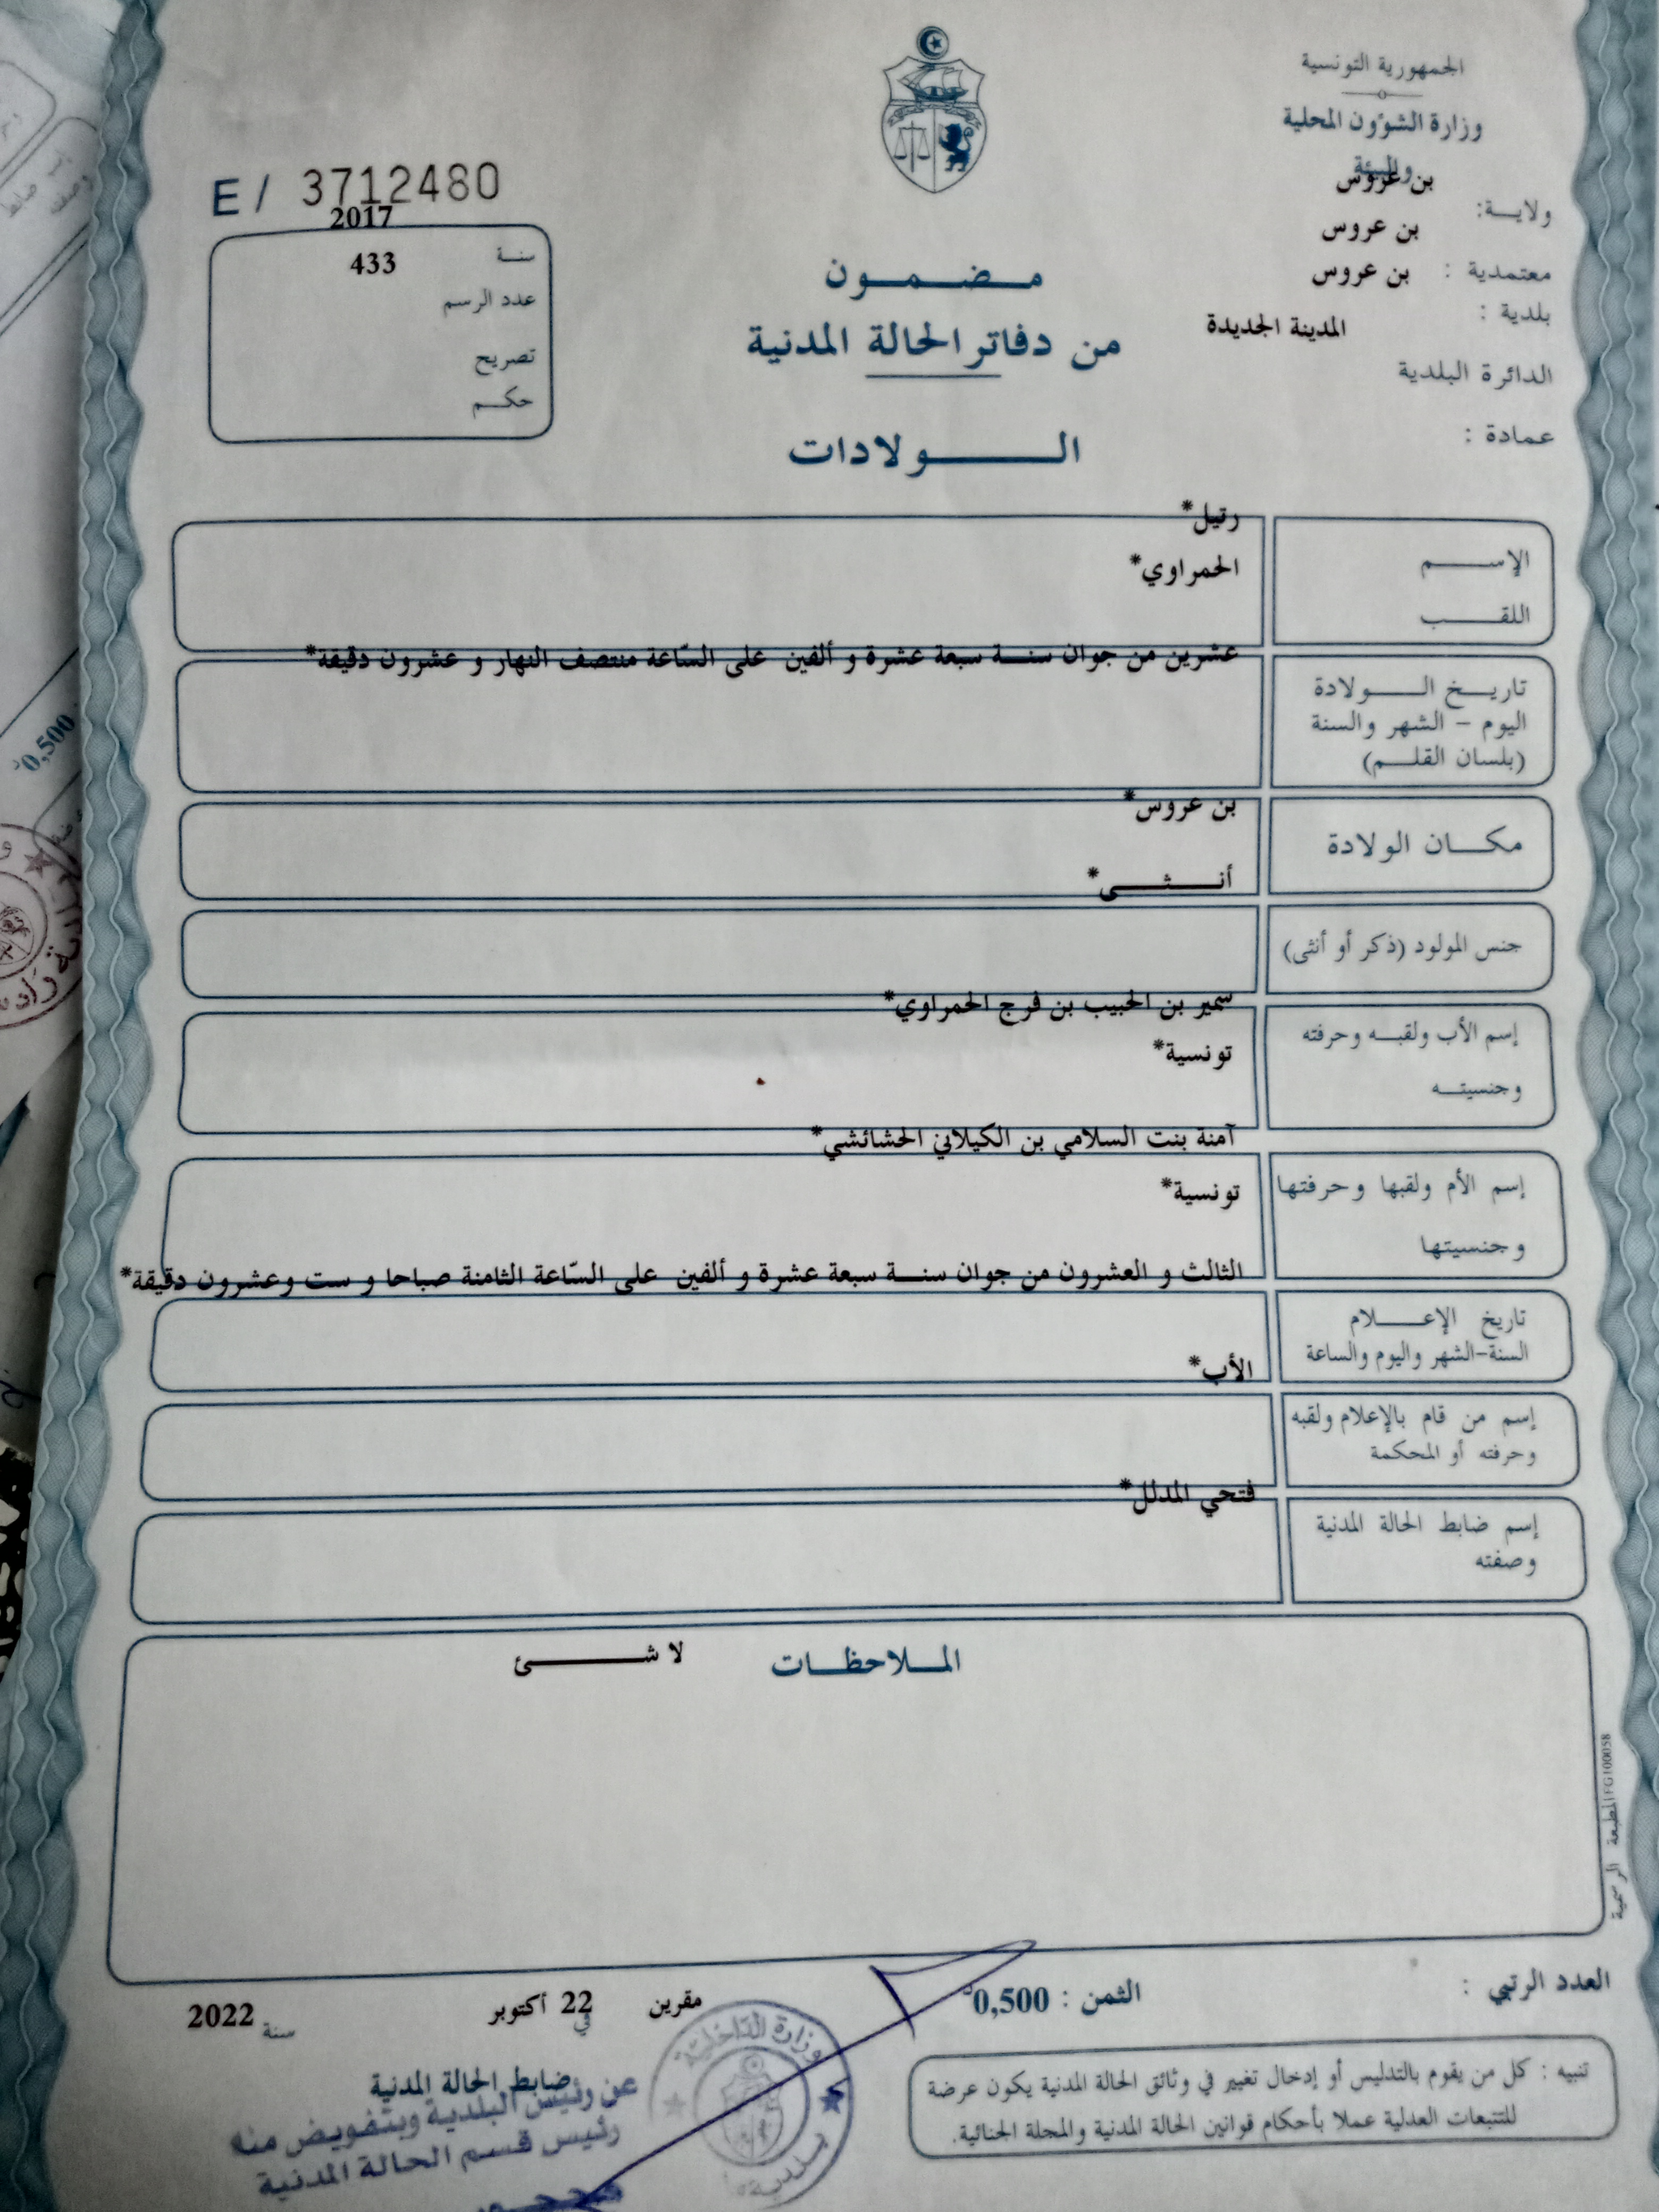 الجمهورية التونسية
وزارة الشؤون المحلية
والبيئة
ولاية: بن عروس
معتمدية : بن عروس
بلدية : بن عروس
الدائرة البلدية المدينة الجديدة
عمادة :
E / 3712480
سنة 2017
عدد الرسم 433
تصريح
حكم
مضمون
من دفاتر الحالة المدنية
الولادات
الإسم رتيل*
اللقب الحمراوي*
تاريخ الولادة
اليوم - الشهر والسنة
(بلسان القلم)
عشرين من جوان سنة سبعة عشرة و ألفين على السّاعة منتصف النهار و عشرون دقيقة*
مكان الولادة بن عروس*
جنس المولود (ذكر أو أنثى) أنثى*
إسم الأب ولقبه وحرفته سمير بن الحبيب بن فرج الحمراوي*
وجنسيته تونسية*
إسم الأم ولقبها وحرفتها آمنة بنت السلامي بن الكيلاني الحشائشي*
وجنسيتها تونسية*
تاريخ الإعلام
السنة-الشهر واليوم والساعة
الثالث و العشرون من جوان سنة سبعة عشرة و ألفين على السّاعة الثامنة صباحا و ست وعشرون دقيقة*
إسم من قام بالإعلام ولقبه
وحرفته أو المحكمة
الأب*
إسم ضابط الحالة المدنية
وصفته
فتحي المدلل*
الملاحظات لا شئ
المطبعة الرسمية FG100058
العدد الرتبي :
الثمن : 0,500د
مقرين في 22 أكتوبر سنة 2022
تنبيه : كل من يقوم بالتدليس أو إدخال تغيير في وثائق الحالة المدنية يكون عرضة
للتتبعات العدلية عملا بأحكام قوانين الحالة المدنية والمجلة الجنائية.
ضابط الحالة المدنية
عن رئيس البلدية وبتفويض منه
رئيس قسم الحالة المدنية
وزارة الداخلية
بلدية
0,500د